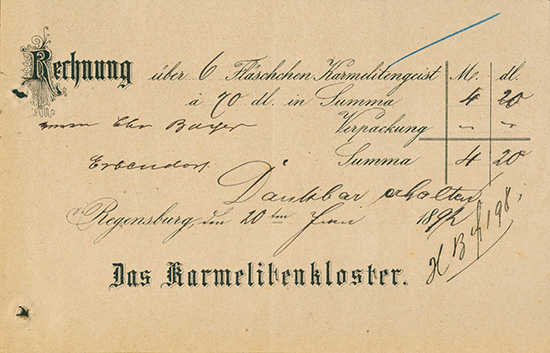 Rechnung über 6 Fläschchen Karmelitengeist M. dl.
à 70 dl. in Summa 4 20
Ebr Bayer Verpackung " "
Erbendorf Summa 4 20
Dankbar erhalten
Regensburg, den 20ten 1892
Das Karmelitenkloster.